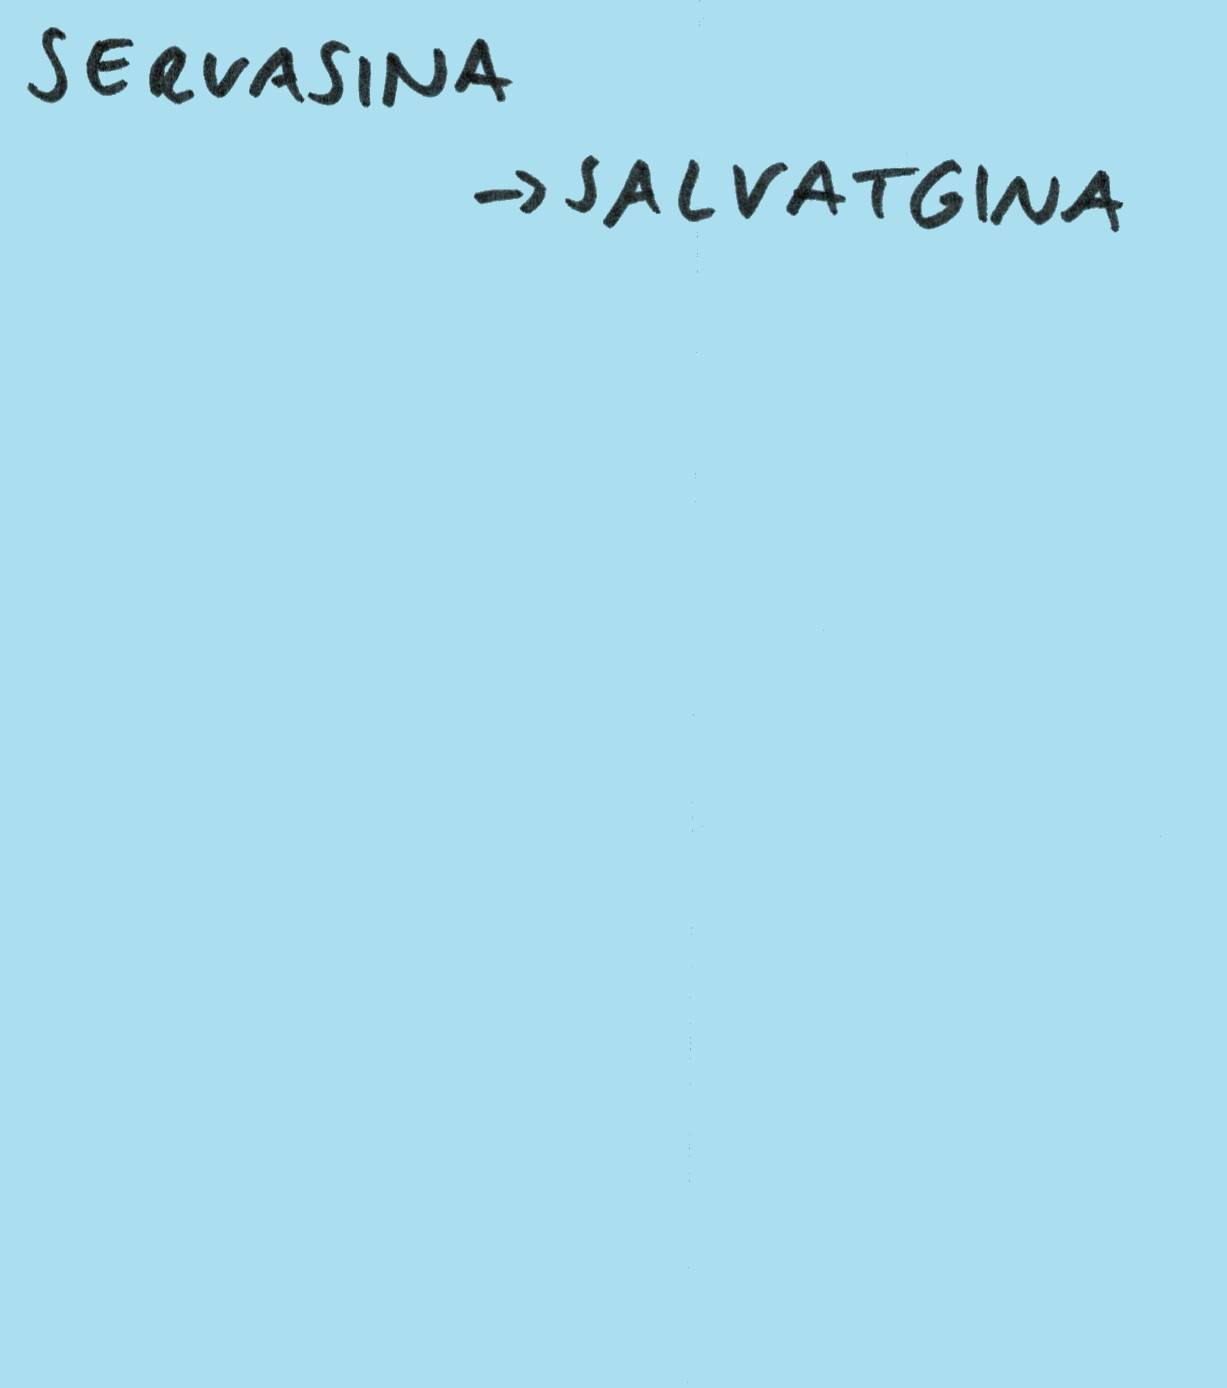 SERVASINA
→ SALVATGINA